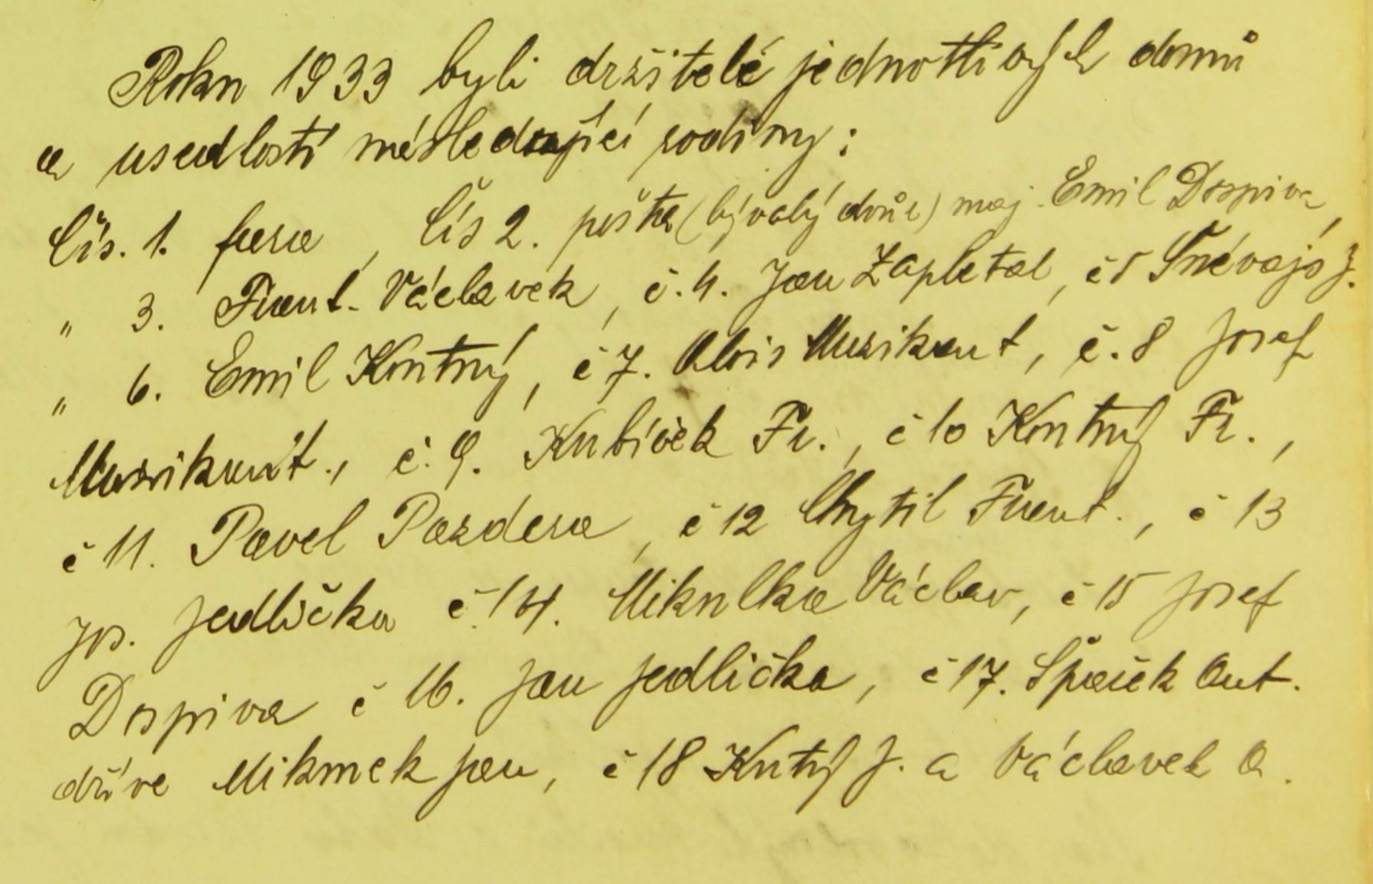 Roku 1933 byli držitelé jednotlivých domů
a usedlostí následující rodiny:
Čís. 1. fara, Čís 2. pošta (bývalý dvůr) maj. Emil Dospiva,
„ 3. Frant. Václavek, č. 4. Jan Zapletal, č 5 J.
„ 6. Emil Kontný, č 7. Alois Muzikant, č. 8 Josef
Muzikant., č. 9. Kubíček Fr., č 10 Kontný Fr.,
č 11. Pavel Pazdera, č 12 Chytil Frant., č 13
Jos. Jedlička č. 14. Mikulka Václav, č 15 Josef
Dospiva č 16. Jan Jedlička, č 17. Špaček Ant.
dříve Mikmek Jan, č 18 J. a Václavek A.